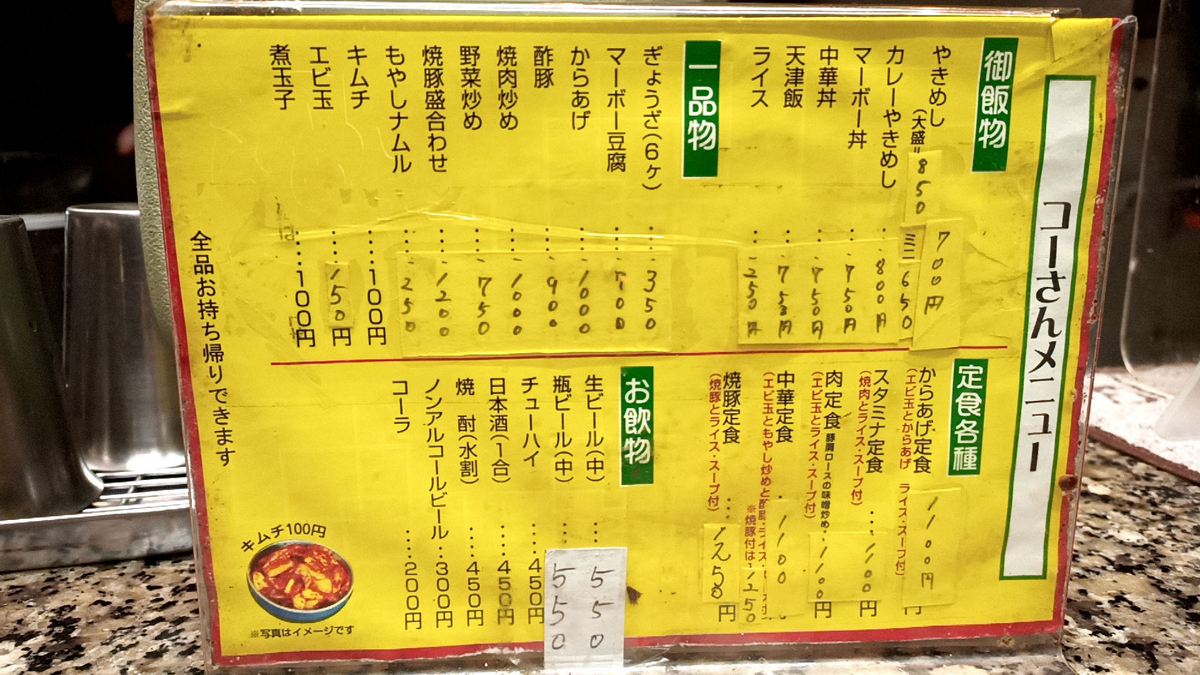 コーさんメニュー
御飯物
やきめし 700円
(大盛=850 ミニ650
カレーやきめし 800円
マーボー丼 750円
中華丼 750円
天津飯 750円
ライス 250円
一品物
ぎょうざ(6ヶ) 350
マーボー豆腐
からあげ 1000
酢豚 900
焼肉炒め 1000
野菜炒め 750
焼豚盛合わせ 1200
もやしナムル 250
キムチ 100円
エビ玉 150円
煮玉子 100円
定食各種
からあげ定食 1100円
(エビ玉とからあげ ライス・スープ付)
スタミナ定食 1100円
(焼肉とライス・スープ付)
肉定食 豚肩ロースの味噌炒め 1100円
(エビ玉とライス・スープ付)
中華定食 1100
(エビ玉ともやし炒めと
※焼豚付は1250
焼豚定食 1250円
(焼豚とライス・スープ付)
お飲物
生ビール(中) 550
瓶ビール(中) 550
チューハイ 450円
日本酒(1合) 450円
焼 酎(水割) 450円
ノンアルコールビール 300円
コーラ 200円
全品お持ち帰りできます
キムチ100円
※写真はイメージです